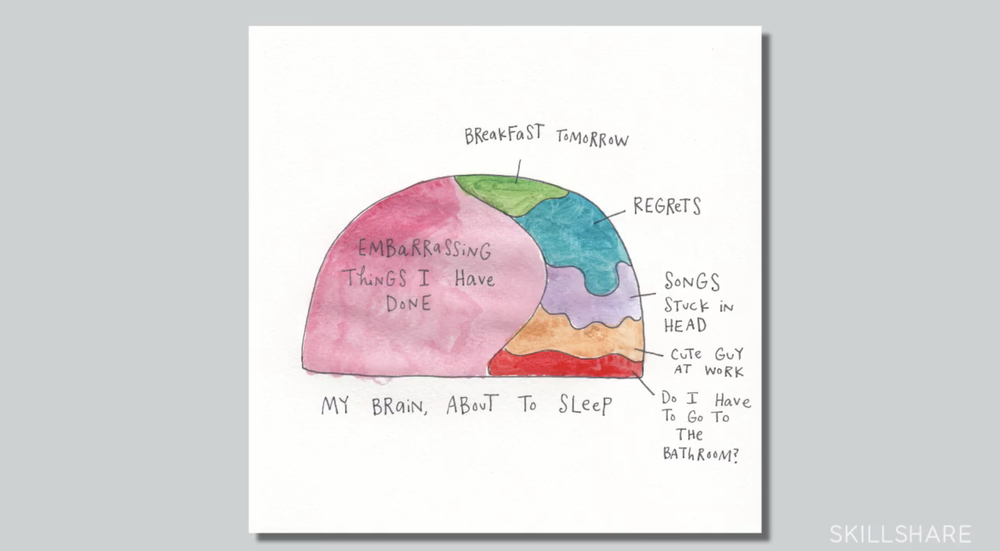 BREAKFAST TOMORROW
REGRETS
EMBARRASSING
THINGS I HAVE
DONE
SONGS
STUCK IN
HEAD
CUTE GUY
AT WORK
DO I HAVE
TO GO TO
THE
BATHROOM?
MY BRAIN, ABOUT TO SLEEP
SKILLSHARE